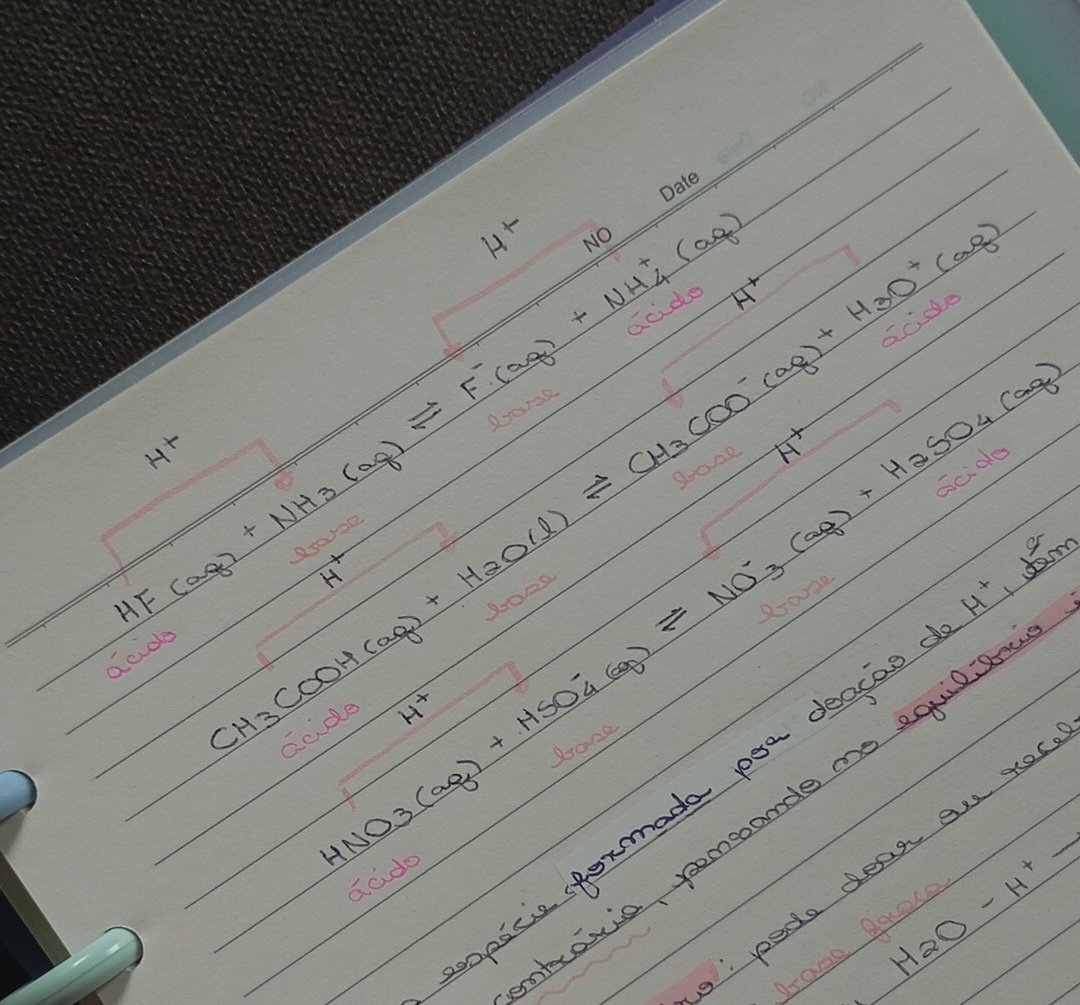 NO Date
H⁺ H⁺
HF (aq) + NH₃ (aq) ⇌ F⁻ (aq) + NH₄⁺ (aq)
ácido base base ácido
H⁺ H⁺
CH₃COOH (aq) + H₂O (l) ⇌ CH₃COO⁻ (aq) + H₃O⁺ (aq)
ácido base base ácido
H⁺ H⁺
HNO₃ (aq) + HSO₄⁻ (aq) ⇌ NO₃⁻ (aq) + H₂SO₄ (aq)
ácido base base ácido
espécie formada por doação de H⁺,
contrária, pensando no equilíbrio
: pode doar ou
base fraca
H₂O - H⁺